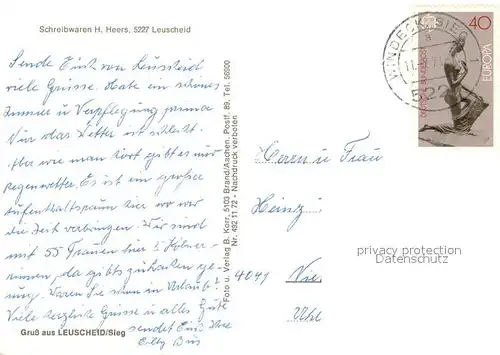 Schreibwaren H. Heers, 5227 Leuscheid
Sende Euch von Leuscheid
viele Grüsse. Habe ein schönes
Zimmer u Verpflegung prima
Nur das Wetter ist schlecht.
Aber wie man hört gibt es nur
Regenwetter. Es ist ein großer
Aufenthaltsraum hier wo wir
die Zeit verbringen. Wir sind
mit 55 Frauen hier
da gibts zu
Waren Sie schon in Urlaub?
Viele herzliche Grüsse u alles Gute
sendet Eure
Gruß aus LEUSCHEID/Sieg
Foto u. Verlag B. Korr, 5103 Brand/Aachen, Postf. 89, Tel. 56600
Nr. 492 11 72 - Nachdruck verboten
WINDECK, SIEG
522
40
EUROPA
DEUTSCHE BUNDESPOST
Herrn u Frau
Heinz
4049
privacy protection
Datenschutz